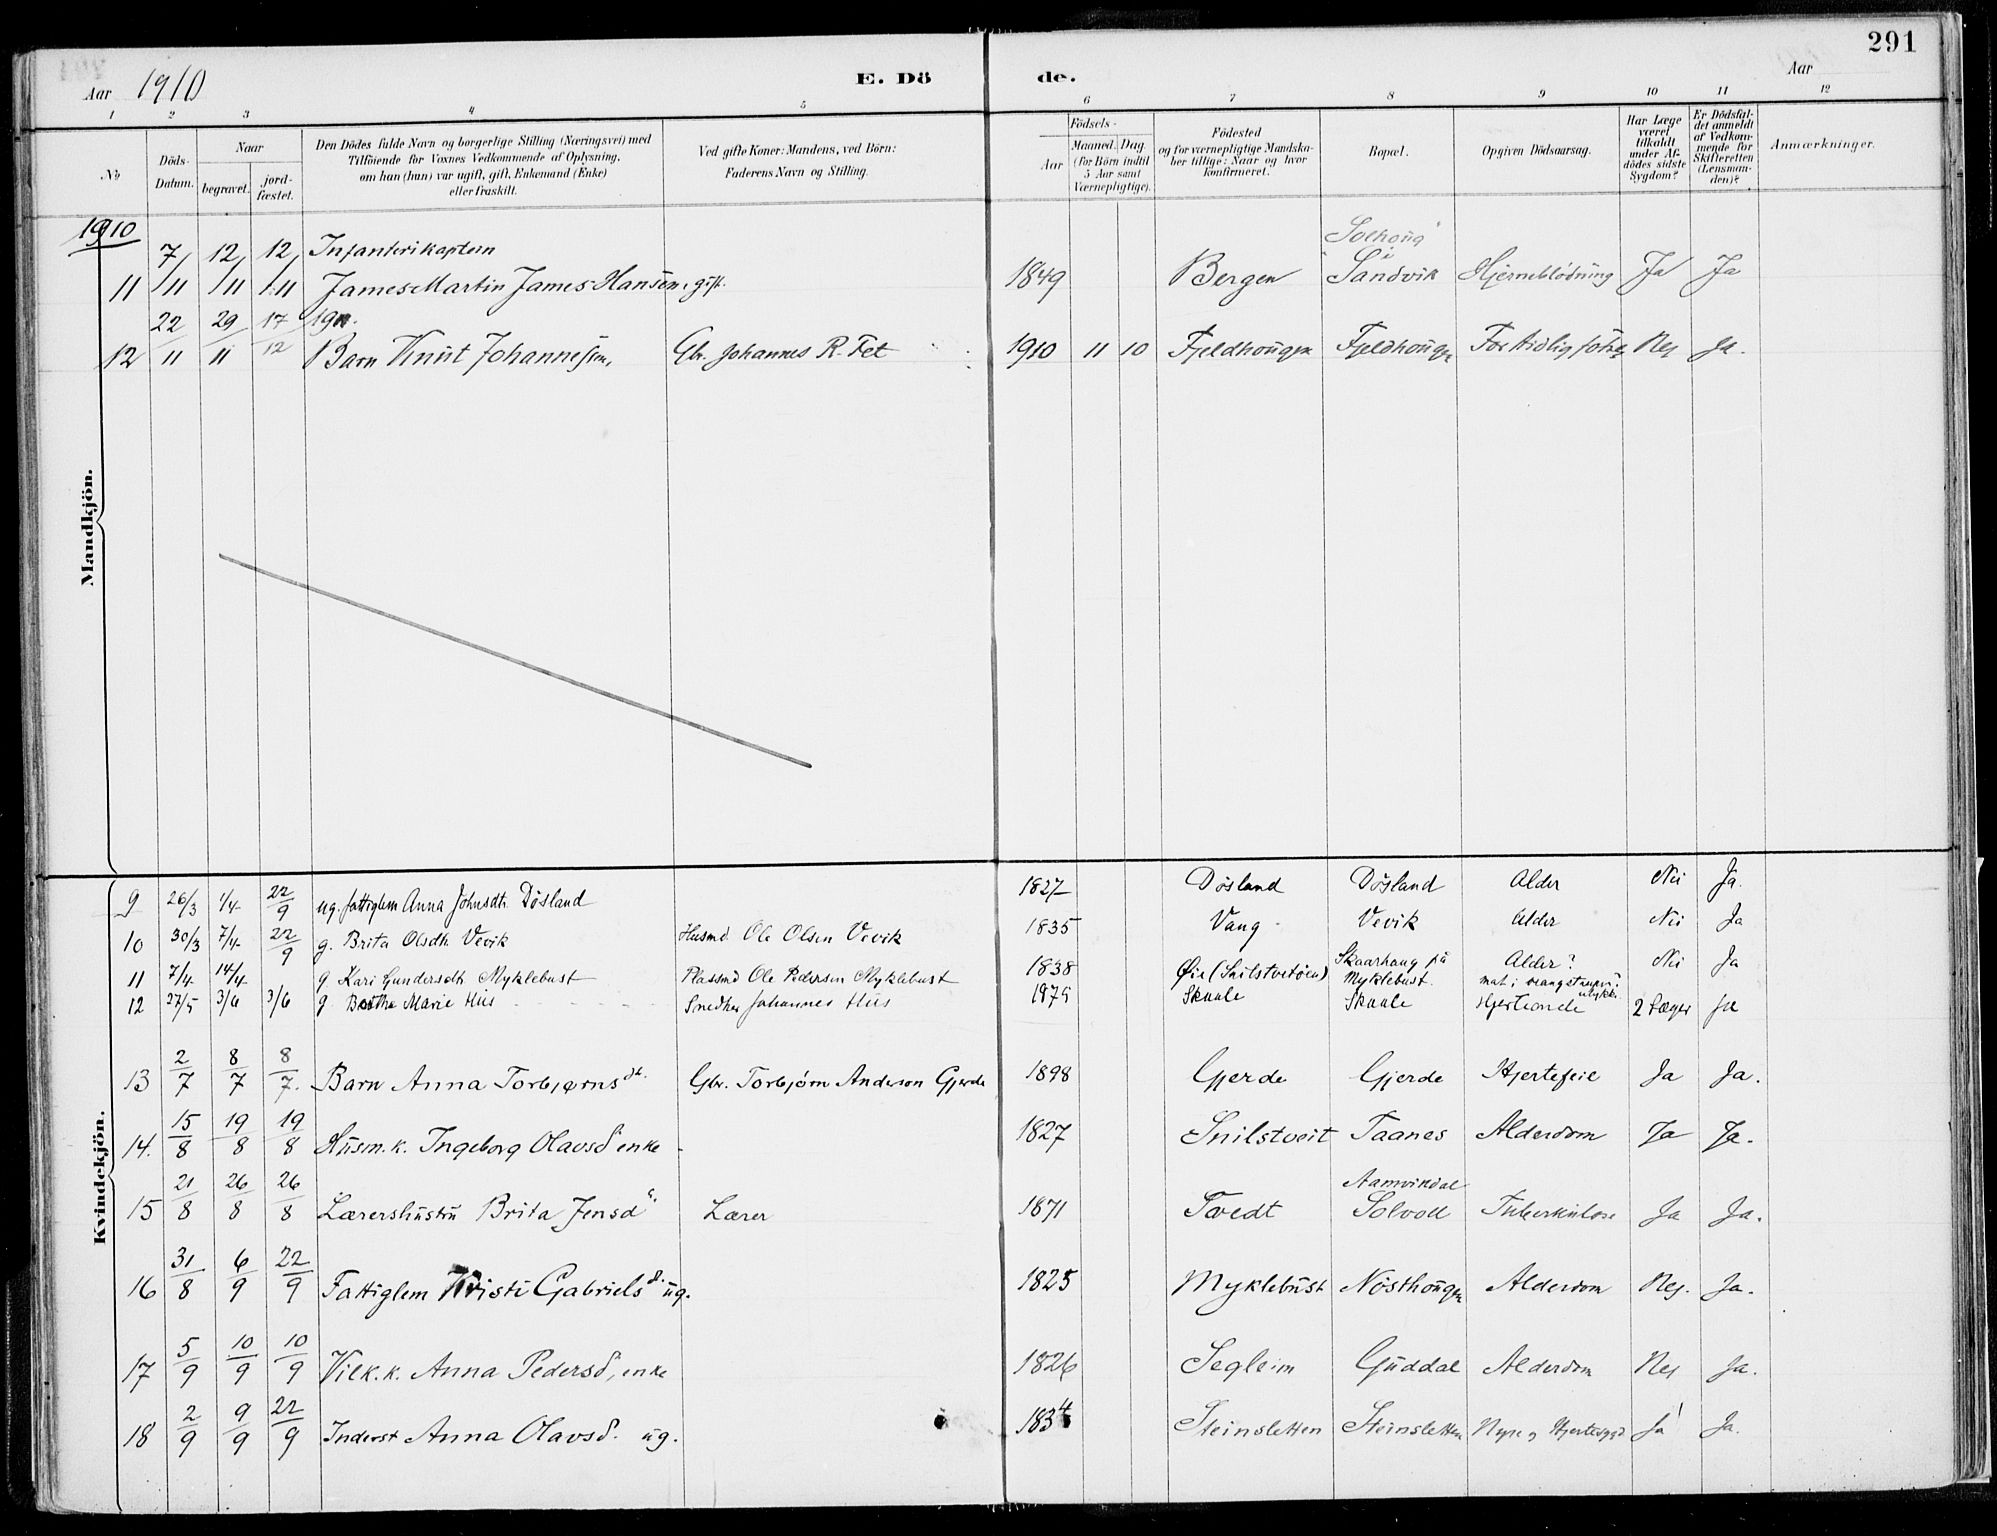 291
Aar 1910 E. Dö de. Aar
1 2 3 4 5 6 7 8 9 10 11 12
No
Döds-Datum.
Naar
begravet.
jord-fæstet.
Den Dödes fulde Navn og borgerlige Stilling (Næringsvei) med
Tilföiende for Voxnes Vedkommende af Oplysning,
om han (hun) var ugift, gift, Enkemand (Enke)
eller fraskilt.
Ved gifte Koner: Mandens, ved Börn:
Faderens Navn og Stilling.
Födsels-
Aar
Maaned. Dag.
(for Börn indtil
5 Aar samt
Værnepligtige).
Födested
og for værnepligtige Mandska-
ber tillige: Naar og hvor
konfirmeret.
Bopæl.
Opgiven Dödsaarsag.
Har Læge
været
tilkaldt
under Af-
dödes sidste
Sygdom?
Er Dödsfal-
det anmeldt
af Vedkom-
mende for
Skifteretten
(Lensman-
den)?
Anmærkninger.
Mandkjön.
1910
11 7/11 12/11 12/11 Infanterikaptein James Martin James-Hansen, gift. 1849 Bergen "Solhoug" i Sandvik Hjerneblödning Ja Ja
12 22/11 29/11 17/12 1911. Barn Knut Johannessen, Gbr. Johannes R. Fet 1910 11 10 Fjeldhougen Fjeldhougen For tidlig födsel Nej Ja.
Kvindekjön.
9 26/3 1/4 22/9 ug. fattiglem Anna Johnsdtr. Døsland 1827 Døsland Døsland Alder Nei Ja.
10 30/3 7/4 22/9 g. Brita Olsdtr. Vevik Husmd. Ole Olsen Vevik 1835 Vang Vevik Alder Nei Ja
11 7/4 14/4 g Kari Gundersdtr Myklebust Plassmd Ole Pedersen Myklebust 1838 Øie (Snilstvetøen) Skaarhaug på Myklebust. Alder? Nei Ja
12 27/5 3/6 3/6 g. Berthe Marie Hus Snedker Johannes Hus 1875 Skaale Skaale Hjerteonde 2 Læger Ja
13 2/7 8/7 8/7. Barn Anna Torbjørnsdt. Gbr. Torbjörn Anderson Gjerde 1898 Gjerde Gjerde Hjertefeil Ja Ja.
14. 15/8 19/8 19/8 Husm. k. Ingeborg Olavsd enke 1827 Snilstveit Taanes Alderdom Ja Ja.
15 21/8 26/8 26/8 Lærershustru Brita Jensd Lærer 1871 Tvedt Aamvikdal Solvoll Tuberkulose Ja Ja.
16 31/8 6/9 22/9 Fattiglem Kristi Gabrielsd. ug. 1825 Myklebust Nösthougen Alderdom Nej. Ja.
17 5/9 10/9 10/9 Vilk. k. Anna Pedersd, enke 1826 Segleim Guddal Alderdom Nej Ja.
18 2/9 9/9 22/9 Inderst Anna Olavsd. ug. 1834 Steinsletten Steinsletten Nyre og Hjertesygd Ja Ja.